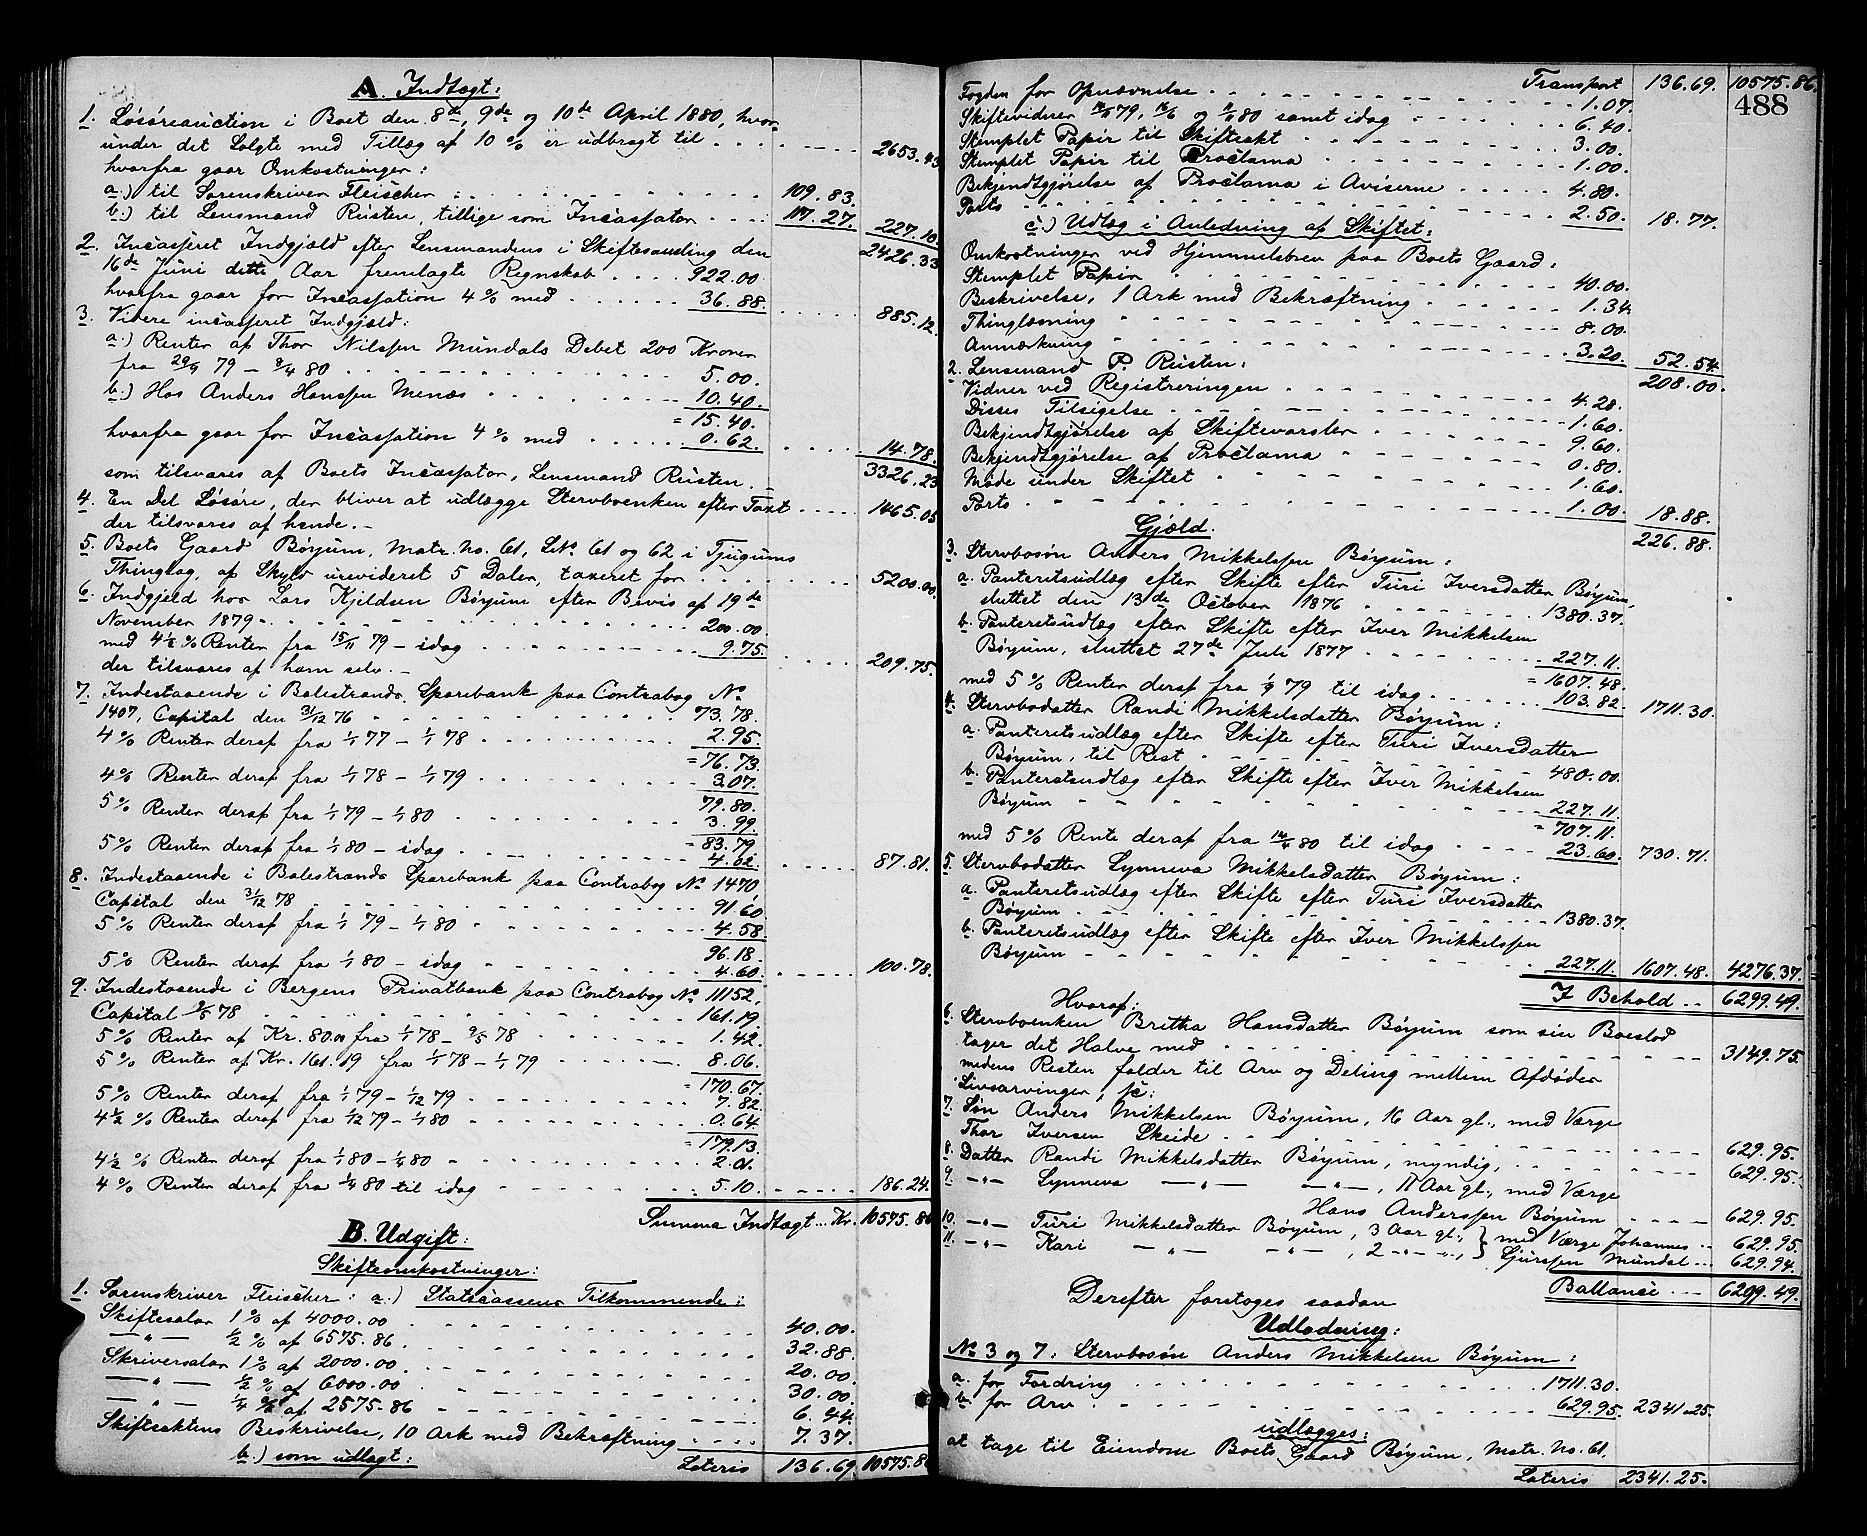 A. Indtægt:
1. Løsøreauction i Boet den 8de, 9de og 10de April 1880, hvor-
under det Solgte med Tillæg af 10 % er udbragt til 2653.43
hvorfra gaar Omkostninger:
a.) til Sorenskriver Fleischer 109.83.
b.) til Lensmand Rusten, tillige som Incassator 117.27. 227.10
2426.33
2. Incasseret Indgjæld efter Lensmandens i Skiftesamling den
16de Juni dette Aar fremlagte Regnskab 922.00
hvorfra gaar for Incassation 4 % med 36.88. 885.12
3. Videre incasseret Indgjæld:
a.) Renter af Thor Nilssen Mundals Debet 200 Kroner
fra 29/9 79 – 9/4 80 5.00.
b.) Hos Anders Hanssen Menæs 10.40.
= 15.40.
hvorfra gaar for Incassation 4 % med 0.62. 14.78.
som tilsvares af Boets Incassator, Lensmand Rusten. – 3326.23
4. En Del Løsøre, der bliver at udlægge Stervboenken efter Taxt 1465.05
der tilsvares af hende. –
5. Boets Gaard Bøyum, Matr. No. 61, L.No. 61 og 62 i Tjugums
Thinglag, af Skyld urevideret 5 Daler, taxeret for 5200.00.
6. Indgjæld hos Lars Kjeldsen Bøyum efter Bevis af 19de
November 1879 200.00
med 4½ % Renter fra 15/11 79 – idag 9.75. 209.75.
der tilsvares af ham selv. –
7. Indestaaende i Balestrands Sparebank paa Contrabog No
1407, Capital den 31/12 76 73.78.
4 % Renter deraf fra 1/1 77 – 1/1 78 2.95.
= 76.73
4 % Renter deraf fra 1/1 78 – 1/1 79 3.07.
79.80.
5 % Renter deraf fra 1/1 79 – 1/1 80 3.99.
= 83.79
5 % Renter deraf fra 1/1 80 – idag 4.62. 87.81.
8. Indestaaende i Balestrands Sparebank paa Contrabog No 1470,
Capital den 31/12 78 91.60
5 % Renter deraf fra 1/1 79 – 1/1 80 4.58.
96.18.
5 % Renter deraf fra 1/1 80 – idag 4.60. 100.78.
9. Indestaaende i Bergens Privatbank paa Contrabog No 11152,
Capital 9/5 78 161.19
5 % Renter af Kr. 80.00 fra 1/1 78 – 9/5 78 1.42.
5 % Renter af Kr. 161.19 fra 1/1 78 – 1/1 79 8.06.
= 170.67.
5 % Renter deraf fra 1/1 79 – 1/12 79 7.82.
4½ % Renter deraf fra 1/12 79 – 1/1 80 0.64
= 179.13.
4½ % Renter deraf fra 1/1 80 – 1/4 80 2.01.
4 % Renter deraf fra 1/4 80 til idag 5.10. 186.24.
Summa Indtægt ... Kr. 10575.86
B. Udgift:
Skifteomkostninger:
1. Sorenskriver Fleischer: a.) Statscassens Tilkommende:
Skiftesalær 1 % af 4000.00 40.00.
—„— ½ % af 6575.86. 32.88.
Skriversalær 1 % af 2000.00 20.00.
—„— ½ % af 6000.00 30.00.
—„— ¼ % af 2575.86 6.44.
Skifteaktens Beskrivelse, 10 Ark med Bekræftning 7.37.
b.) som udlagt: Lateris 136.69 10575.86
Transport 136.69. 10575.86.
488
Fogden for Opnævnelse 1.07.
Skiftevidner 79, 16/6 og 80 samt idag 6.40.
Stemplet Papir til Skifteakt 3.00.
Stemplet Papir til Proclama 1.00.
Bekjendtgjørelse af Proclama i Aviserne 4.80.
Porto 2.50. 18.77.
c.) Udlæg i Anledning af Skiftet:
Omkostninger ved Hjemmelsbrev paa Boets Gaard:
Stemplet Papir 40.00.
Beskrivelse, 1 Ark med Bekræftning 1.34.
Thinglæsning 8.00.
Anmærkning 3.20. 52.54.
208.00.
2. Lensmand P. Rusten:
Vidner ved Registreringen 4.28.
Disses Tilsigelse 1.60.
Bekjendtgjørelse af Skiftevarsler 9.60.
Bekjendtgjørelse af Proclama 0.80.
Møde under Skiftet 1.60.
Porto 1.00. 18.88.
226.88.
Gjæld.
3. Stervbosøn Anders Mikkelssen Bøyum:
a. Panteretsudlæg efter Skifte efter Turi Iversdatter Bøyum,
sluttet den 13de October 1876 1380.37.
b. Panteretsudlæg efter Skifte efter Iver Mikkelsen
Bøyum, sluttet 27de Juli 1877 227.11.
= 1607.48.
med 5 % Renter deraf fra 1/9 79 til idag 103.82. 1711.30.
4. Stervbodatter Randi Mikkelsdatter Bøyum:
a. Panteretsudlæg efter Skifte efter Turi Iversdatter
Bøyum, til Rest 480.00.
b. Panteretsudlæg efter Skifte efter Iver Mikkelsen
Bøyum 227.11.
= 707.11.
med 5 % Rente deraf fra 14/4 80 til idag 23.60. 730.71.
5. Stervbodatter Synneva Mikkelsdatter Bøyum:
a. Panteretsudlæg efter Skifte efter Turi Iversdatter
Bøyum 1380.37.
b. Panteretsudlæg efter Skifte efter Iver Mikkelssen
Bøyum 227.11. 1607.48. 4276.37.
I Behold 6299.49.
Hvoraf:
6. Stervboenken Britha Hansdatter Bøyum som sin Boeslod
tager det Halve med 3149.75.
medens Resten falder til Arv og Deling mellem Afdødes
Livsarvinger, sc:
7. Søn Anders Mikkelsen Bøyum, 16 Aar gl., med Værge
Thor Iversen Skeide 629.95.
8. Datter Randi Mikkelsdatter Bøyum, myndig, 629.95.
9. —„— Synneva —„— —„—, 11 Aar gl., med Værge
Hans Anderssen Bøyum 629.95.
10. —„— Turi Mikkelsdatter Bøyum, 3 Aar gl., } med Værge Johannes 629.95.
11. —„— Kari —„— —„—, 2 —„— „—, } Sjurssen Mundal 629.94.
Ballance 6299.49.
Derefter foretoges saadan
Udlodning:
No 3 og 7: Stervbosøn Anders Mikkelsen Bøyum:
a. for Fordring 1711.30.
b. for Arv 629.95. 2341.25.
udlægges:
at tage til Eiendom Boets Gaard Bøyum, Matr. No. 61.
Lateris 2341.25.